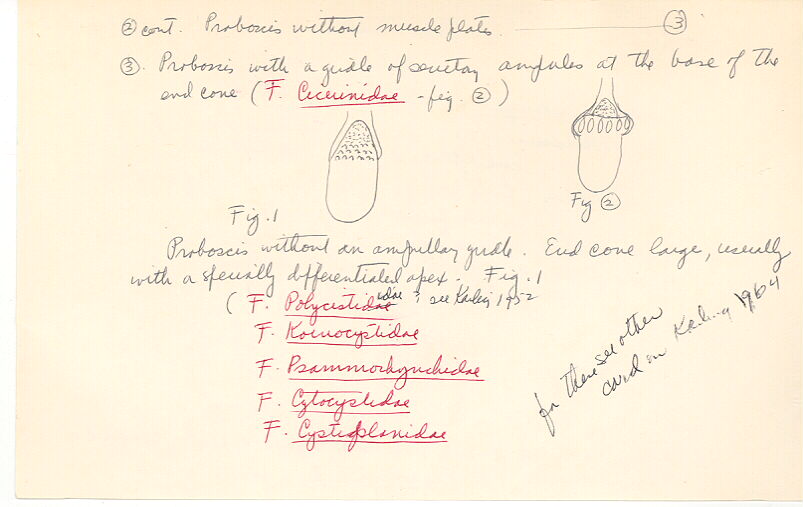 ② cont. Proboscis without muscle plates. ——— ③
③. Proboscis with a girdle of secretory ampules at the base of the
end cone (F. Cicerinidae - fig. ②)
Fig. 1
Fig ②
Proboscis without an ampullary girdle. End cone large, usually
with a specially differentiated apex. Fig. 1
(F. Polycistidae idae ? see Karling 1952
F. Koinocystidae
F. Psammorhynchidae
F. Cytocystidae
F. Cystiplanidae
for these see other
card on Karling 1964